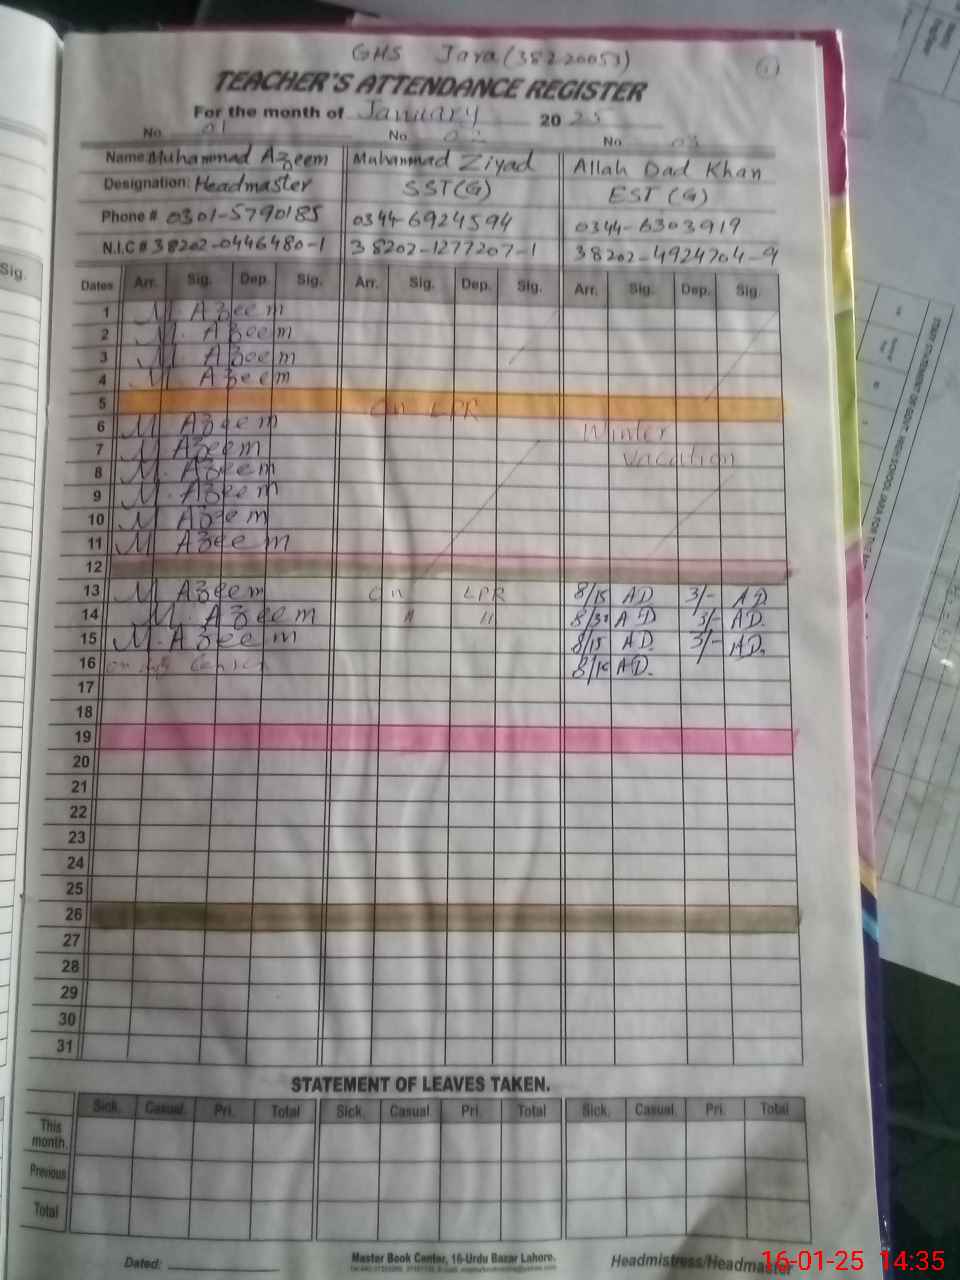 GHS Jara (38220053)
TEACHER'S ATTENDANCE REGISTER
For the month of January 2025
No. 01 No. 02 No. 03
Name: Muhammad Azeem Muhammad Ziyad Allah Dad Khan
Designation: Headmaster SST(G) EST (G)
Phone # 0301-5790185 0344-6924594 0344-6303919
N.I.C # 38202-0446480-1 38202-1277207-1 38202-4924704-9
Sig.
Dates Arr. Sig. Dep. Sig. Arr. Sig. Dep. Sig. Arr. Sig. Dep. Sig.
1 M. Azeem
2 M. Azeem
3 M. Azeem
4 M. Azeem
5 On LPR
6 M. Azeem Winter
7 M. Azeem vacation
8 M. Azeem
9 M. Azeem
10 M. Azeem
11 M. Azeem
12
13 M. Azeem On LPR 8/15 AD 3/- AD
14 M. Azeem " " 8/30 AD 3/- AD.
15 M. Azeem 8/15 AD. 3/- AD.
16 on AD.
17
18
19
20
21
22
23
24
25
26
27
28
29
30
31
STATEMENT OF LEAVES TAKEN.
Sick. Casual. Pri. Total Sick. Casual. Pri. Total Sick. Casual. Pri. Total
This month.
Previous
Total
Dated:
Master Book Center, 16-Urdu Bazar Lahore.
Headmistress/Headmaster
16-01-25 14:35